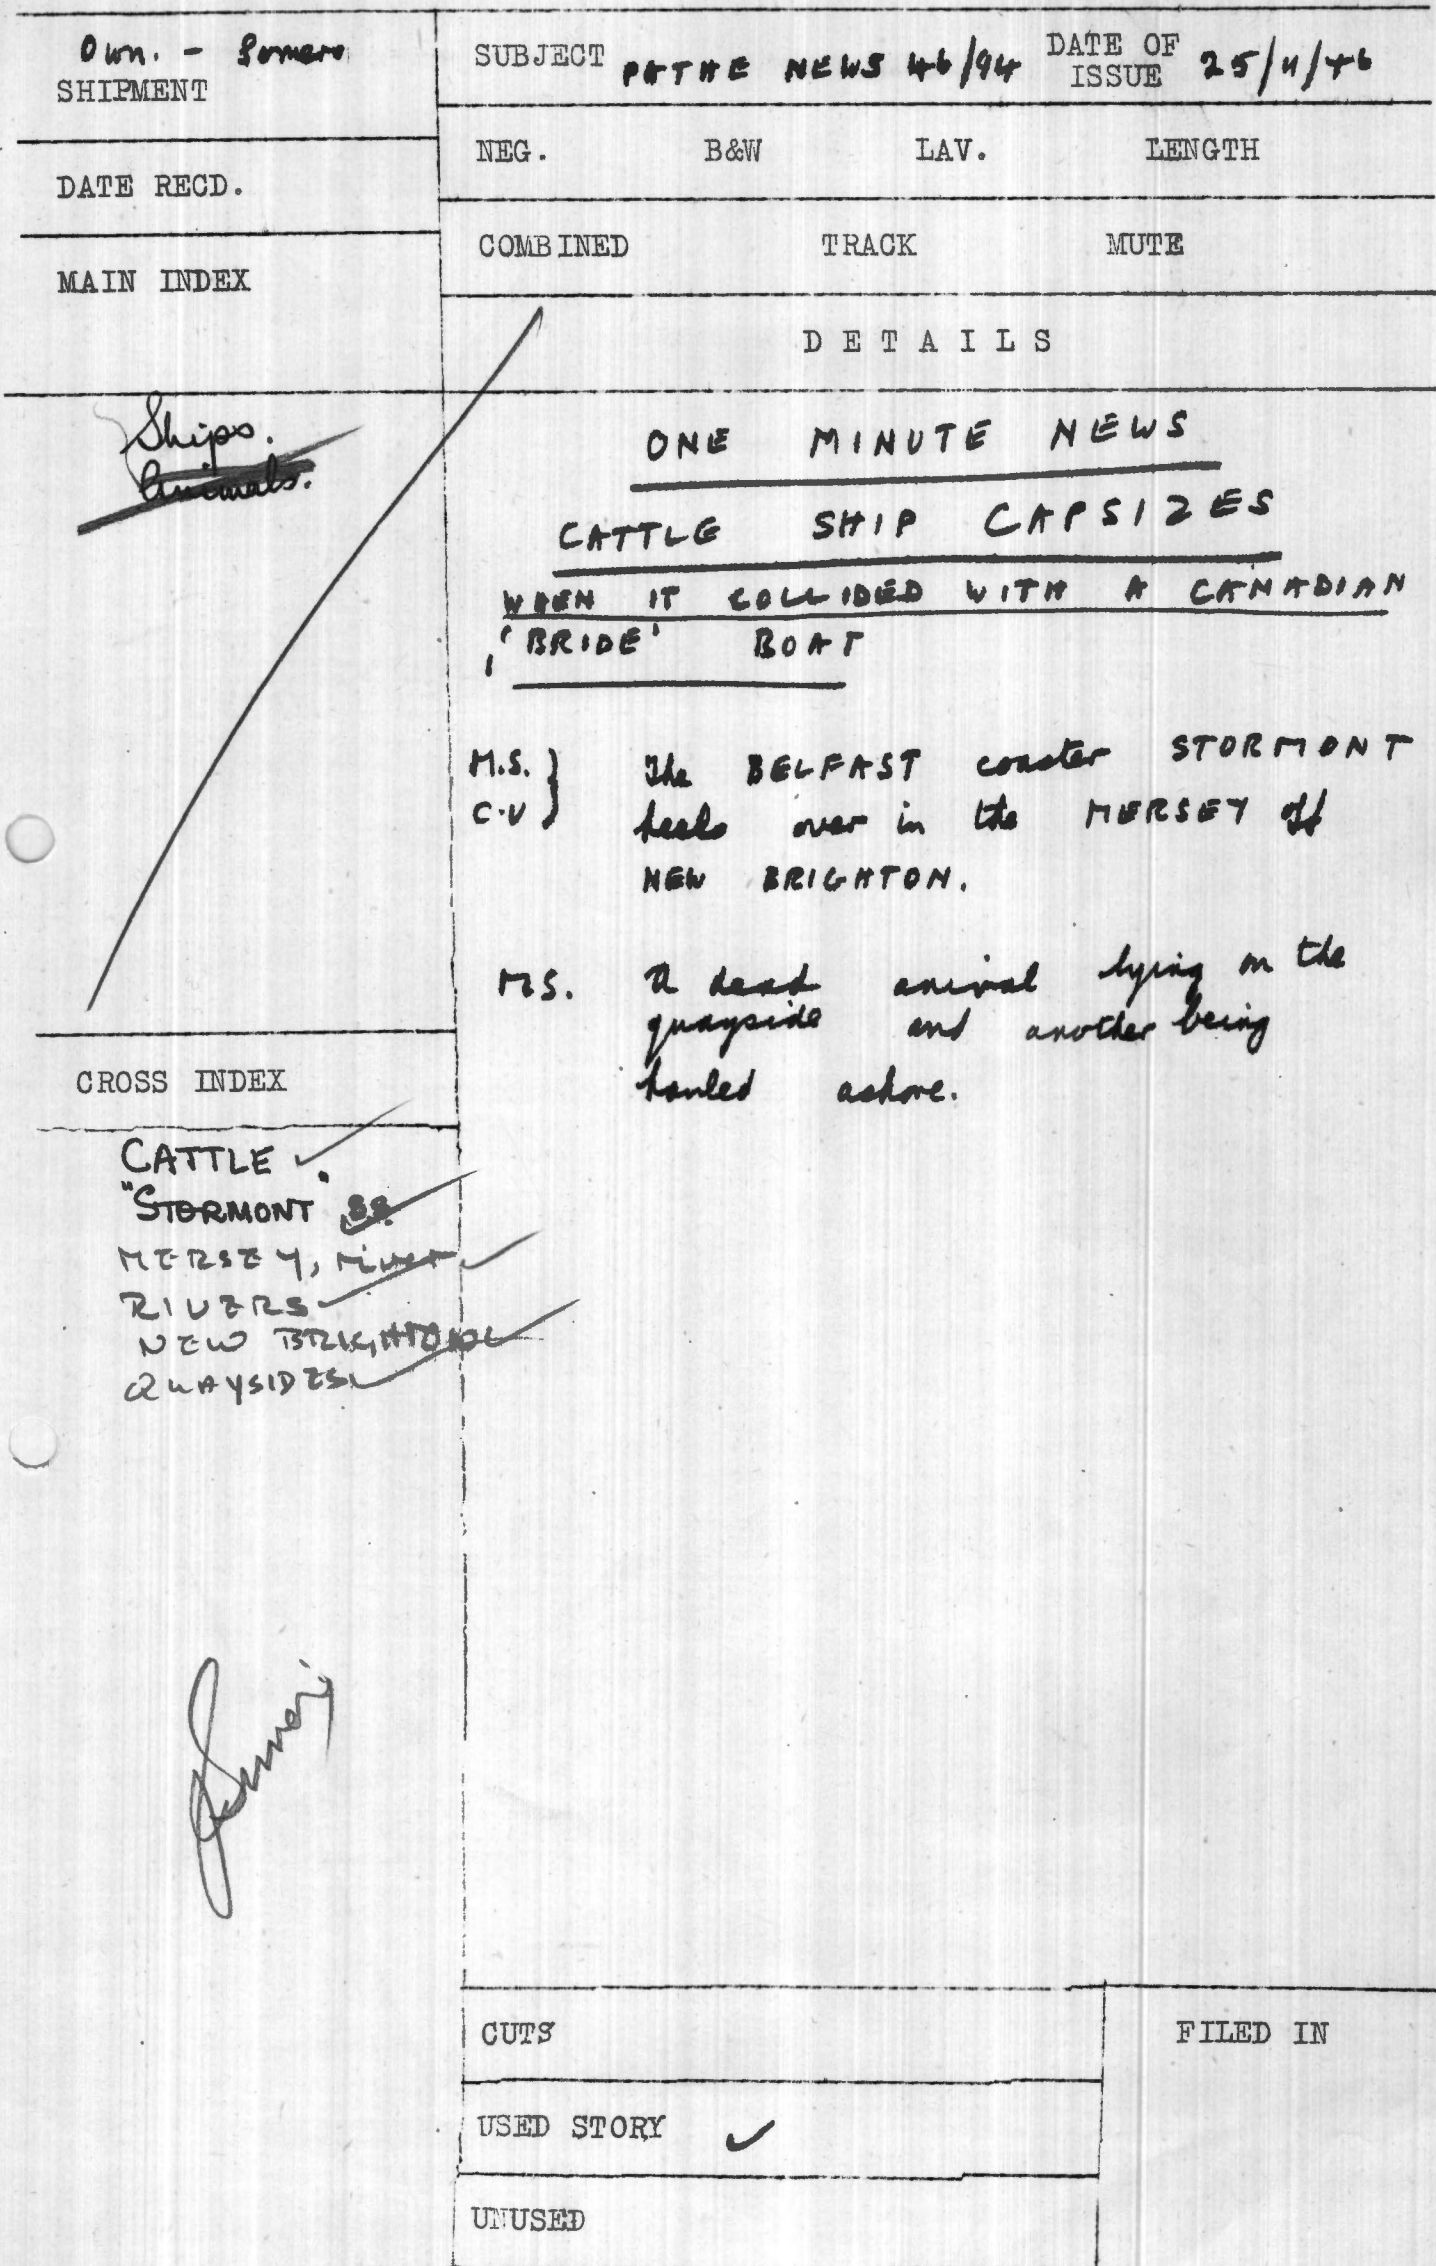 Own. - Somers
SHIPMENT
SUBJECT PATHE NEWS 46/94 DATE OF ISSUE 25/11/46
DATE RECD.
NEG. B&W LAV. LENGTH
COMBINED TRACK MUTE
MAIN INDEX
DETAILS
Ships.
Animals.
ONE MINUTE NEWS
CATTLE SHIP CAPSIZES
WHEN IT COLLIDED WITH A CANADIAN
'BRIDE' BOAT
M.S. } The BELFAST coaster STORMONT
C.V } heels over in the MERSEY off
NEW BRIGHTON.
MS. A dead animal lying on the
quayside and another being
hauled ashore.
CROSS INDEX
CATTLE
"STORMONT" SS.
MERSEY, river
RIVERS
NEW BRIGHTON
QUAYSIDES
CUTS
FILED IN
USED STORY ✓
UNUSED